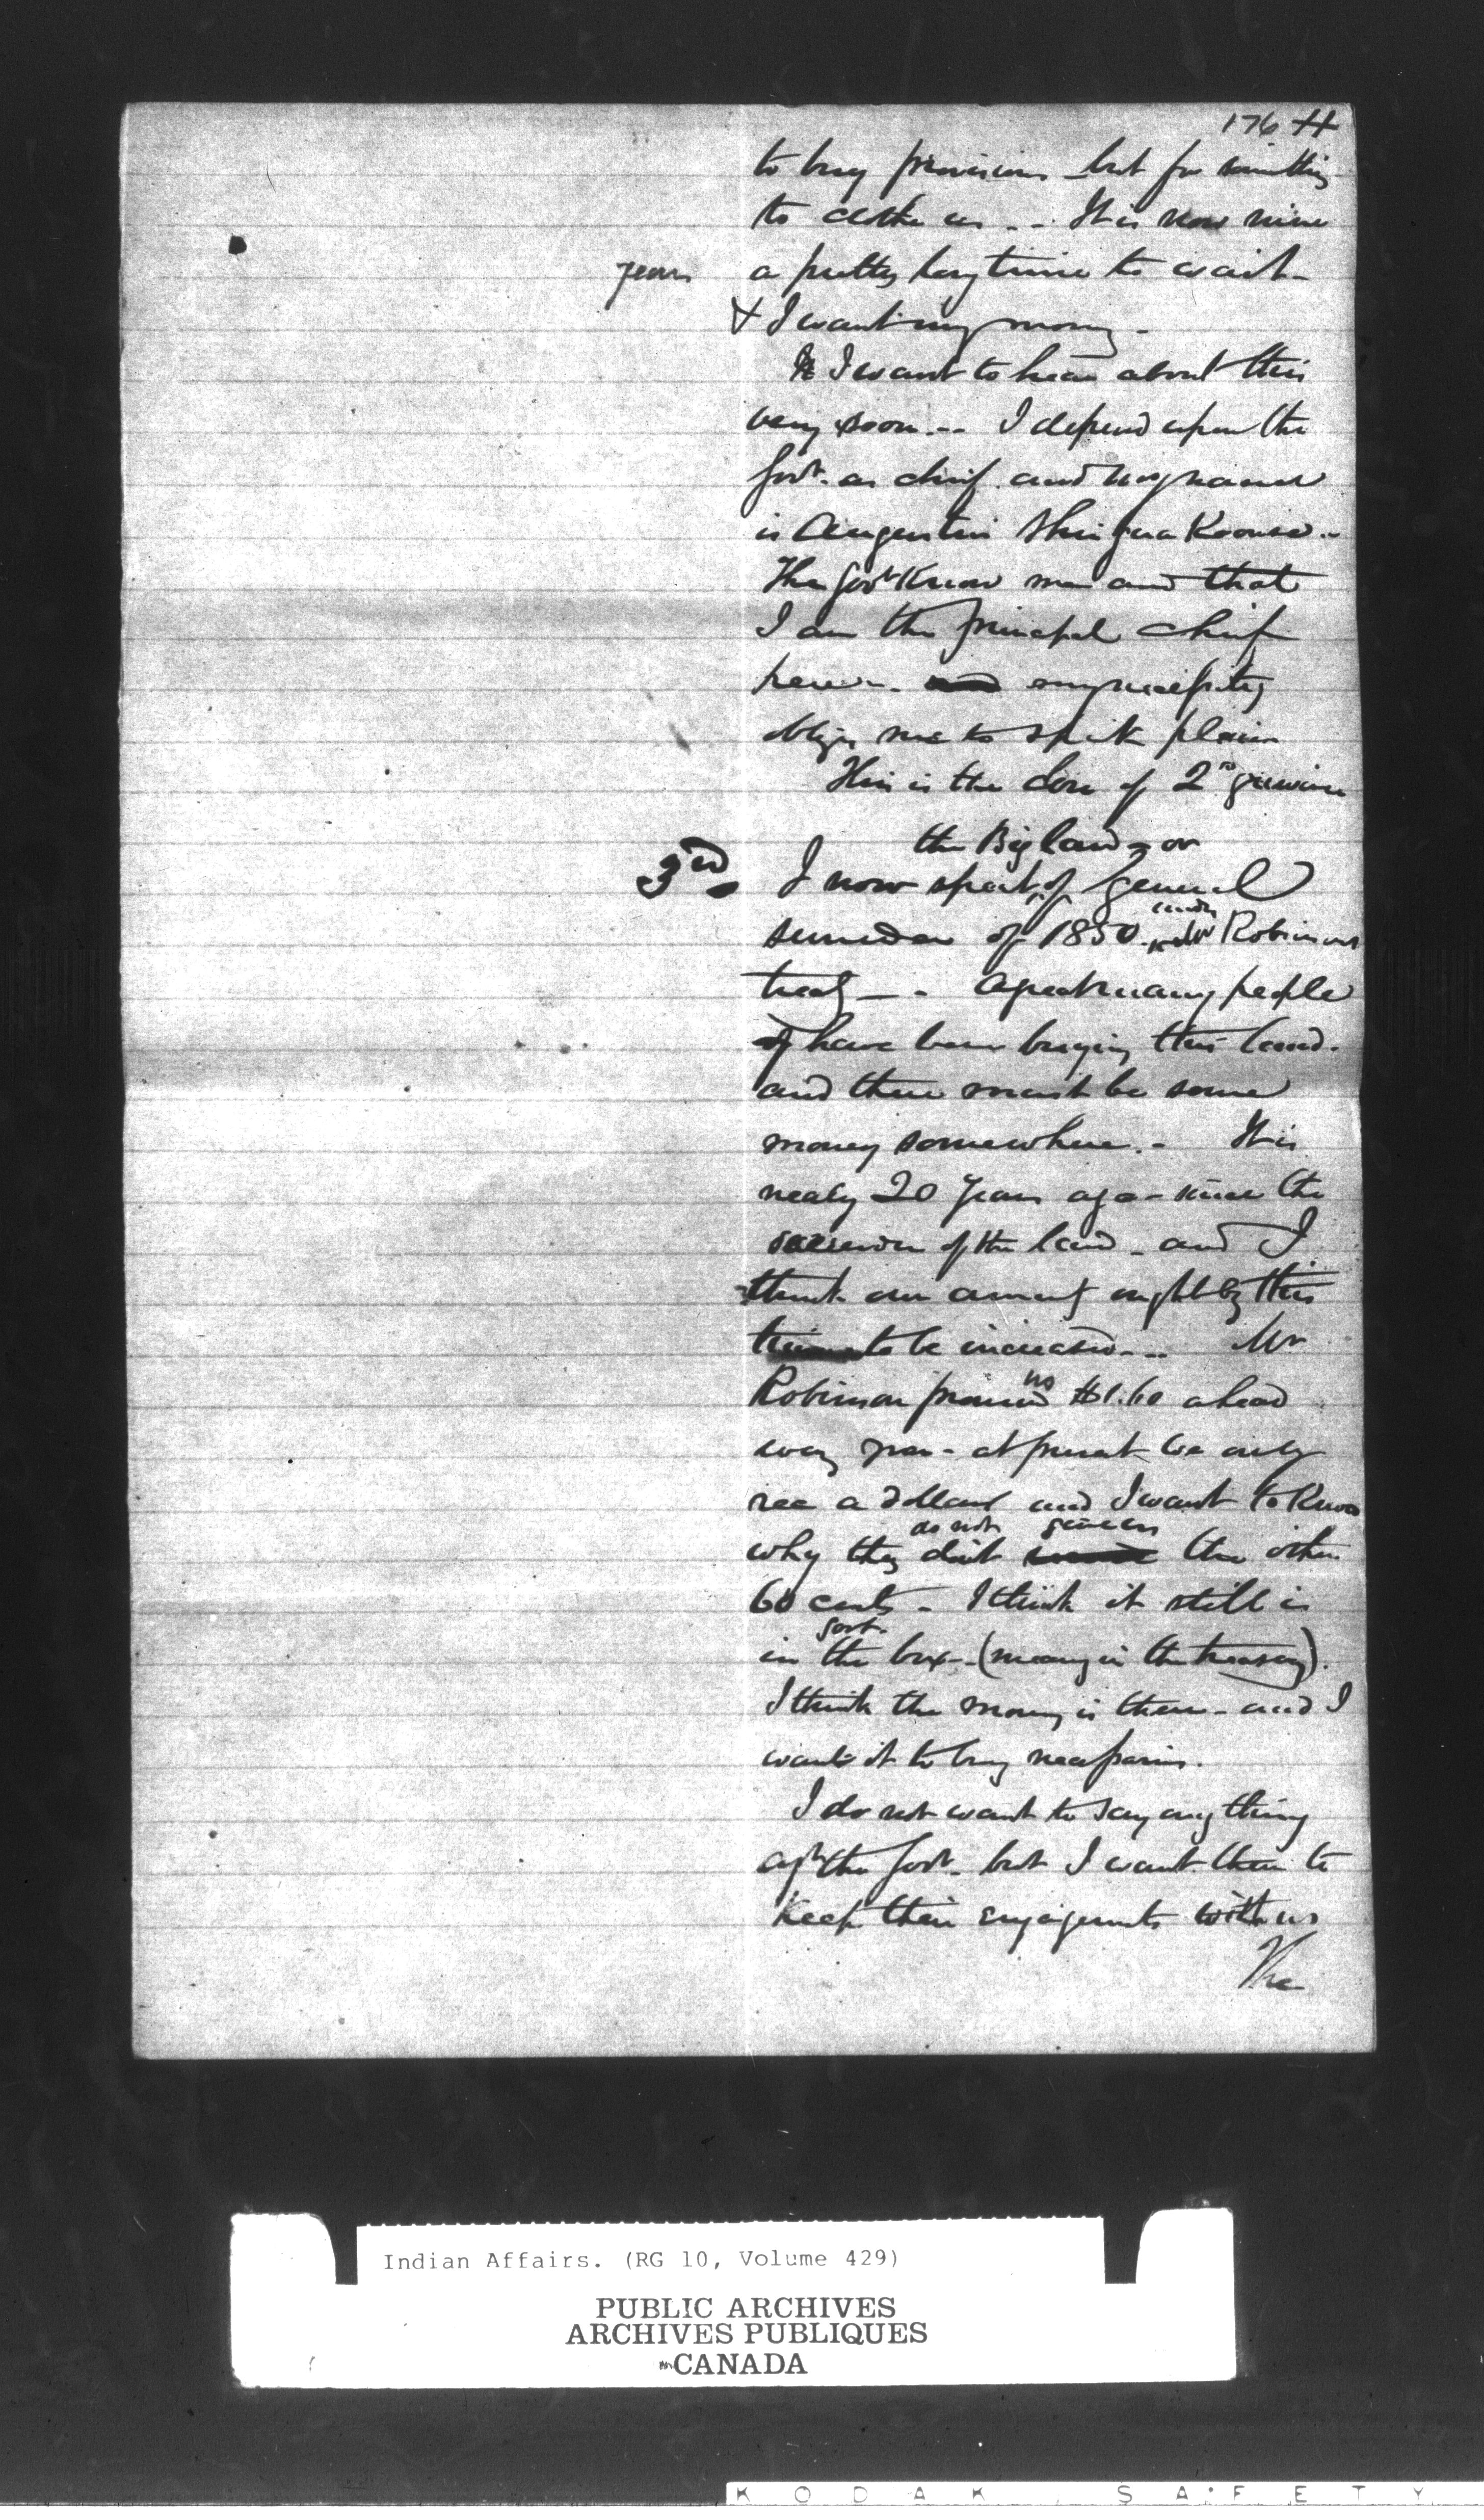 176 H
to buy provisions but for something
to clothe us -- It is now nine
years a pretty long time to wait -
& I want my money -
I want to hear about this
very soon -- I depend upon the
Govt. as chief and my name
is Augustin Shinguakoonse -
The Govt Know me and that
I am the principal chief
here - my necessity
obliges me to speak plain
This is the close of 2nd grievance
the Big land - or
3rd. I now speak of general
surrender of 1850 under Mr Robinsons
treaty - - A great many people
have been buying this land.
and there must be some
money somewhere. - It is
nearly 20 years ago - since the
of the land - and I
think our annuity ought by this
time to be increased -- Mr
Robinson promised us $1.60 a head
every year - at present we only
rec a dollar and I want to Know
why they do not give us the other
60 cents - I think it still is
in the Govt. box - (meaning in the treasury).
I think the money is there - and I
want it to buy necessaries.
I do not want to say any thing
agst the Govt - but I want them to
Keep their engagements with us
The
Indian Affairs. (RG 10, Volume 429)
PUBLIC ARCHIVES
ARCHIVES PUBLIQUES
CANADA
KODAK SAFETY